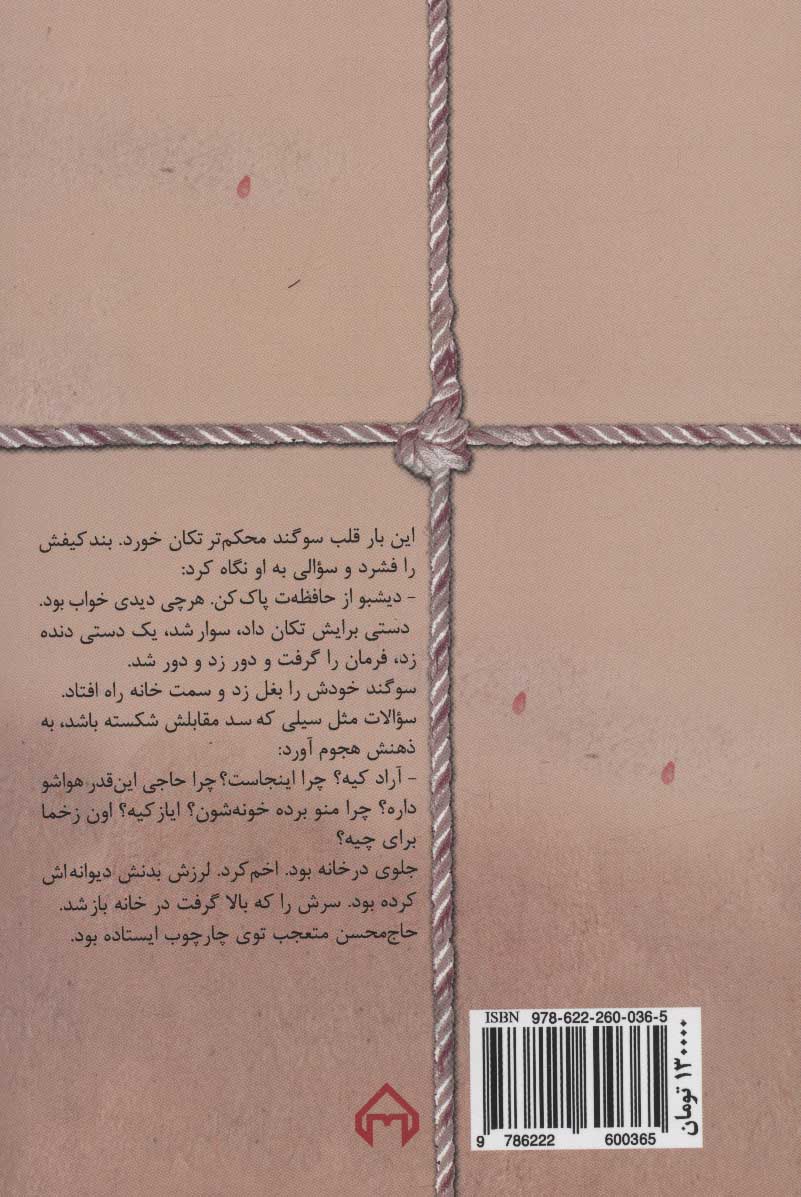 این بار قلب سوگند محکم‌تر تکان خورد. بند کیفش
را فشرد و سؤالی به او نگاه کرد:
- دیشبو از حافظه‌ت پاک کن. هرچی دیدی خواب بود.
دستی برایش تکان داد، سوار شد، یک دستی دنده
زد، فرمان را گرفت و دور زد و دور شد.
سوگند خودش را بغل زد و سمت خانه راه افتاد.
سؤالات مثل سیلی که سد مقابلش شکسته باشد، به
ذهنش هجوم آورد:
- آراد کیه؟ چرا اینجاست؟ چرا حاجی این‌قدر هواشو
داره؟ چرا منو برده خونه‌شون؟ ایاز کیه؟ اون زخما
برای چیه؟
جلوی در خانه بود. اخم کرد. لرزش بدنش دیوانه‌اش
کرده بود. سرش را که بالا گرفت در خانه باز شد.
حاج‌محسن متعجب توی چارچوب ایستاده بود.
ISBN 978-622-260-036-5
9 786222 600365
۱۳۰۰۰۰ تومان